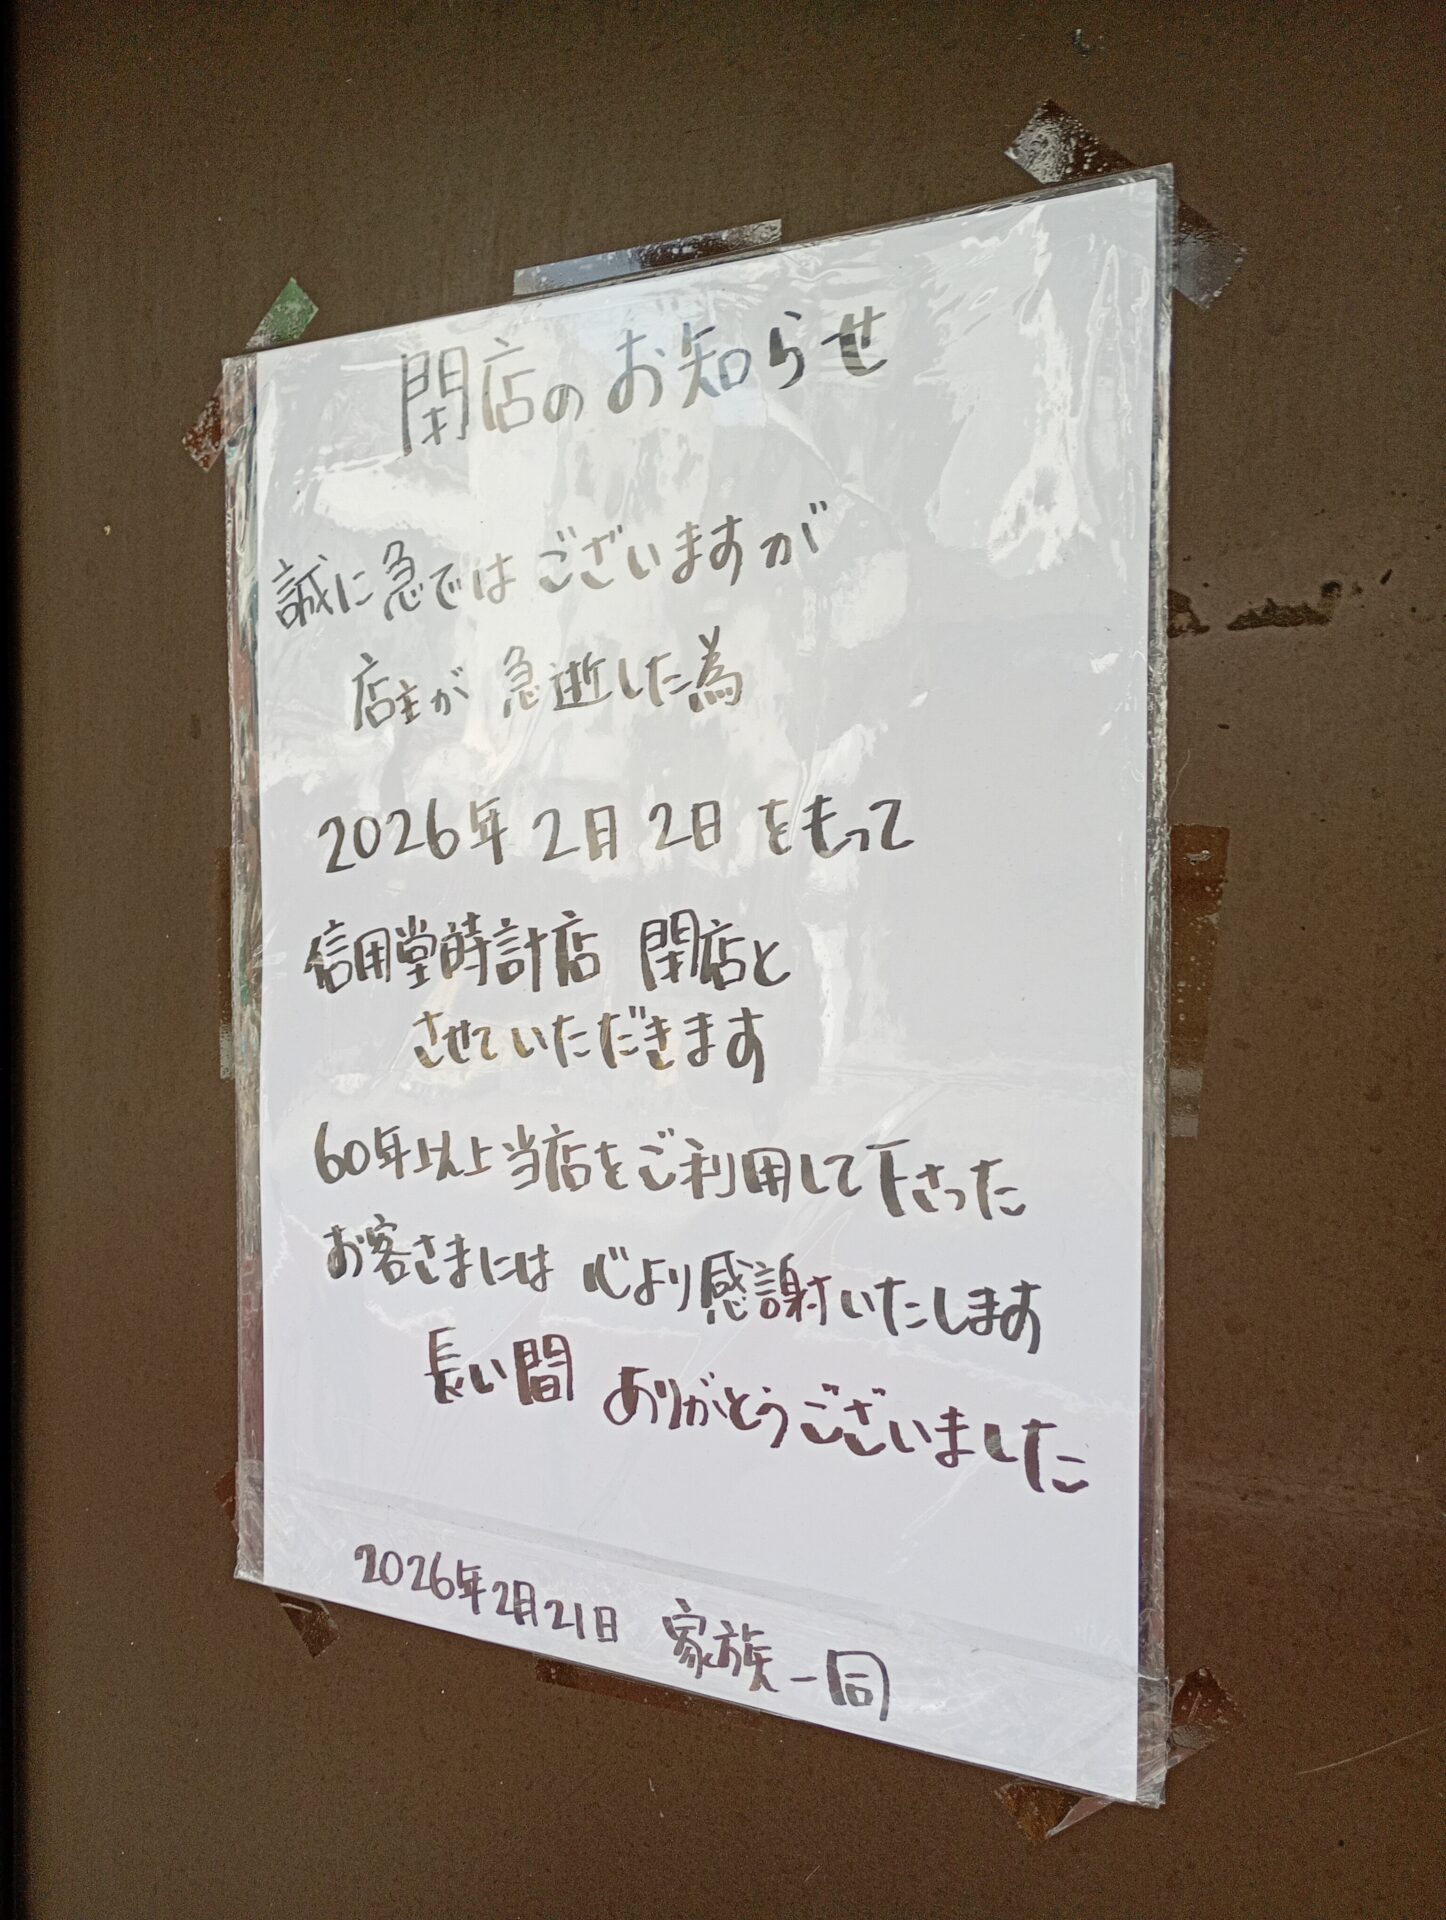 閉店のお知らせ
誠に急ではございますが
店主が 急逝した為
2026年 2月 2日 をもって
信用堂時計店 閉店と
させていただきます
60年以上当店をご利用して下さった
お客さまには 心より感謝いたします
長い間 ありがとうございました
2026年2月21日 家族一同